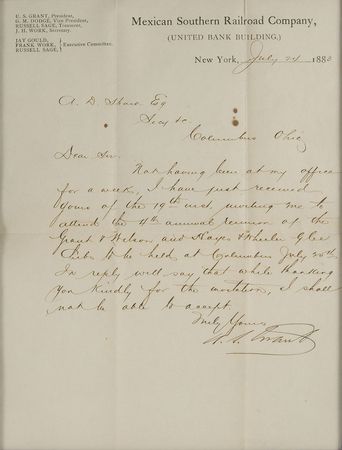 U. S. GRANT, President,
G. M. DODGE, Vice President,
RUSSELL SAGE, Treasurer,
J. H. WORK, Secretary.
JAY GOULD,
FRANK WORK,
RUSSELL SAGE,
Executive Committee.
Mexican Southern Railroad Company,
(UNITED BANK BUILDING,)
New York, July 24 1883
A. D. Shaw Esq
Secy &c
Columbus Ohio
Dear Sir:
Not having been at my office
for a week, I have just received
yours of the 19th inst. inviting me to
attend the 4th annual reunion of the
Grant & Wilson and Hayes & Wheeler Glee
Clubs to be held at Columbus July 25th
In reply will say that while thanking
you kindly for the invitation, I shall
not be able to accept.
Truly Yours
U. S. Grant